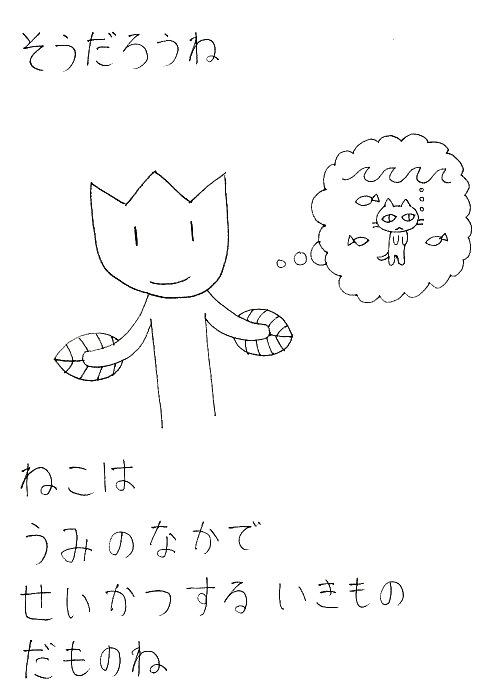 そうだろうね
ねこは
うみのなかで
せいかつする いきもの
だものね